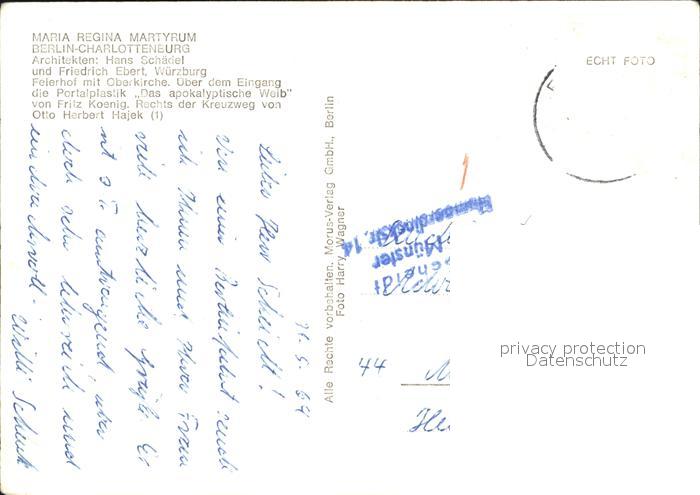 MARIA REGINA MARTYRUM
BERLIN-CHARLOTTENBURG
Architekten: Hans Schädel
und Friedrich Ebert, Würzburg
Feierhof mit Oberkirche. Über dem Eingang
die Portalplastik „Das apokalyptische Weib"
von Fritz Koenig. Rechts der Kreuzweg von
Otto Herbert Hajek (1)
ECHT FOTO
Alle Rechte vorbehalten. Morus-Verlag GmbH., Berlin
Foto Harry Wagner
Lieber Herr Scheidt!
Von einer Berlinfahrt
ich Ihnen und Ihrer Frau
viele herzliche Grüße. Er
ist anstrengend, aber
doch sehr lehrreich und
eindrucksvoll. Willi Schenk
Münster
44
privacy protection
Datenschutz